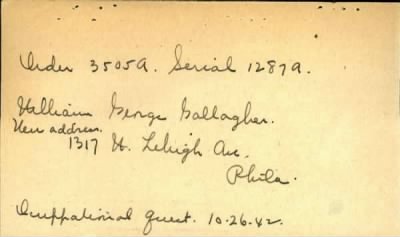 Order 3505A. Serial 1287A.
William George Gallagher.
New address.
1317 W. Lehigh Ave.
Phila.
Occupational quest. 10-26-42.